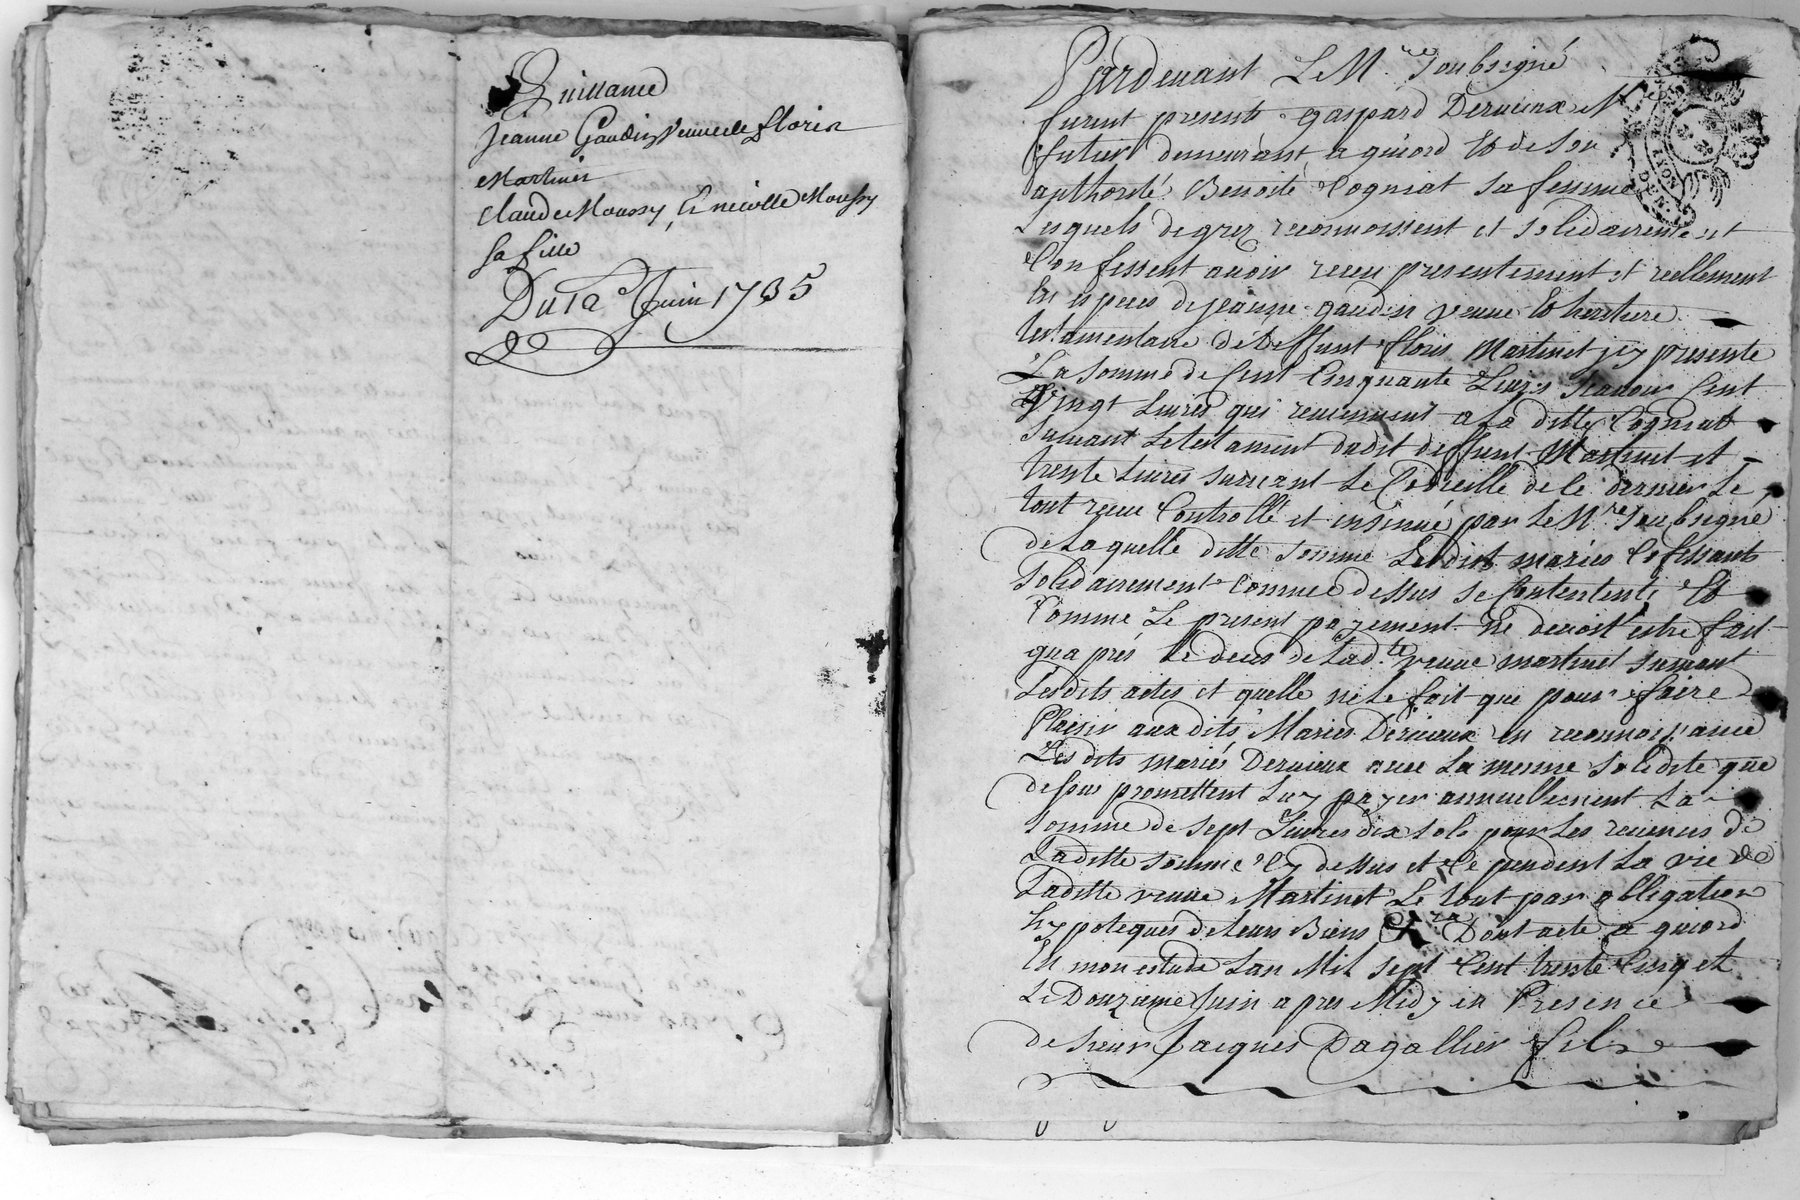 Quittance
Jeanne Gaudin Veuve de floris
Martinet
Claude Moussy, Et nicolle Moussy
sa fille
Du 12e Juin 1735
Pardevant Le M.re soubsigné
furent presents gaspard Dervieux M
futier demeurant a guiord Et de son
authorité Benoite Cogniat sa femme
Lesquels de grez reconnoissent et solidairement
Confessent avoir receu presentement et reellement
En especes de jeanne gaudin veuve Et heritiere
testamentaire de deffunt floris Martinet icy presente
La somme de Cent Cinquante Livres scavoir Cent
Vingt Livres qui reviennent a La ditte Cogniat
suivant Le testament dudit deffunt Martinet et
trente Livres suivant Le Codicille de Ce dernier Le
tout receu Controllé et insinué par Le M.re soubsigné
de Laquelle ditte somme Lesdits mariés Cofessants
solidairement Comme dessus se Contentent Et
Comme Le present payement ne devoit estre fait
quaprés Le deces de Lad.te veuve martinet suivant
Lesdits actes et quelle ne Le fait que pour faire
Plaisir aux dits Mariés Dervieux en reconnoissance
Lesdits mariés Dervieux avec La mesme solidité que
dessus promettent Luy payer annuellement La
somme de sept Livres dix sols pour Les revenus de
Laditte somme Cy dessus et Ce pendent La vie de
Laditte veuve Martinet Le tout par obligation
hypoteques de Leurs Biens &.ra Dont acte a guiord
En mon estude Lan Mil sept Cent trente Cinq et
Le Douzieme Juin apres Midy en Presence
de sieur Jacques Dagallier fils